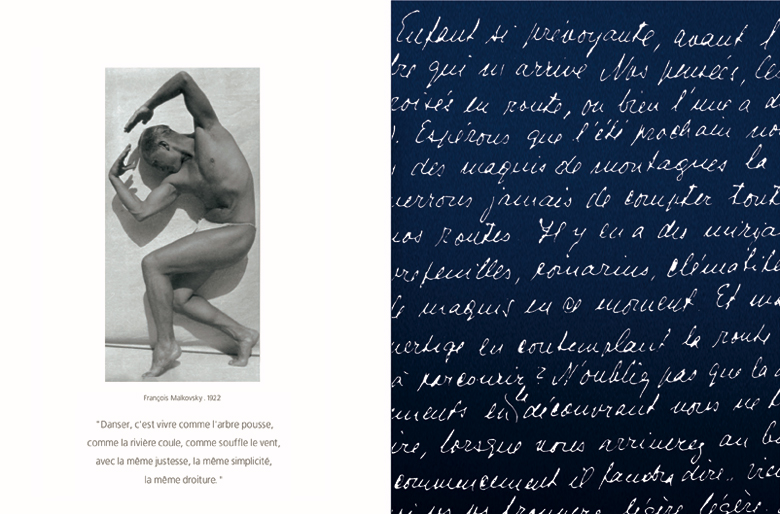 François Malkovsky . 1922
"Danser, c'est vivre comme l'arbre pousse,
comme la rivière coule, comme souffle le vent,
avec la même justesse, la même simplicité,
la même droiture. "
Enfant si prévoyante, avant l'
qui m arrive Nos pensées, les
en route, ou bien l'une a d
Espérons que l'été prochain no
des maquis de montagnes la
jamais de compter tout
nos routes. Il y en a des
romarins, clématite
maquis en ce moment. Et
vertige en contemplant la route
à parcourir? N'oubliez pas que la
en découvrant nous ne
lorsque nous arriverez au
commencement il faudra dire..
légère légère.